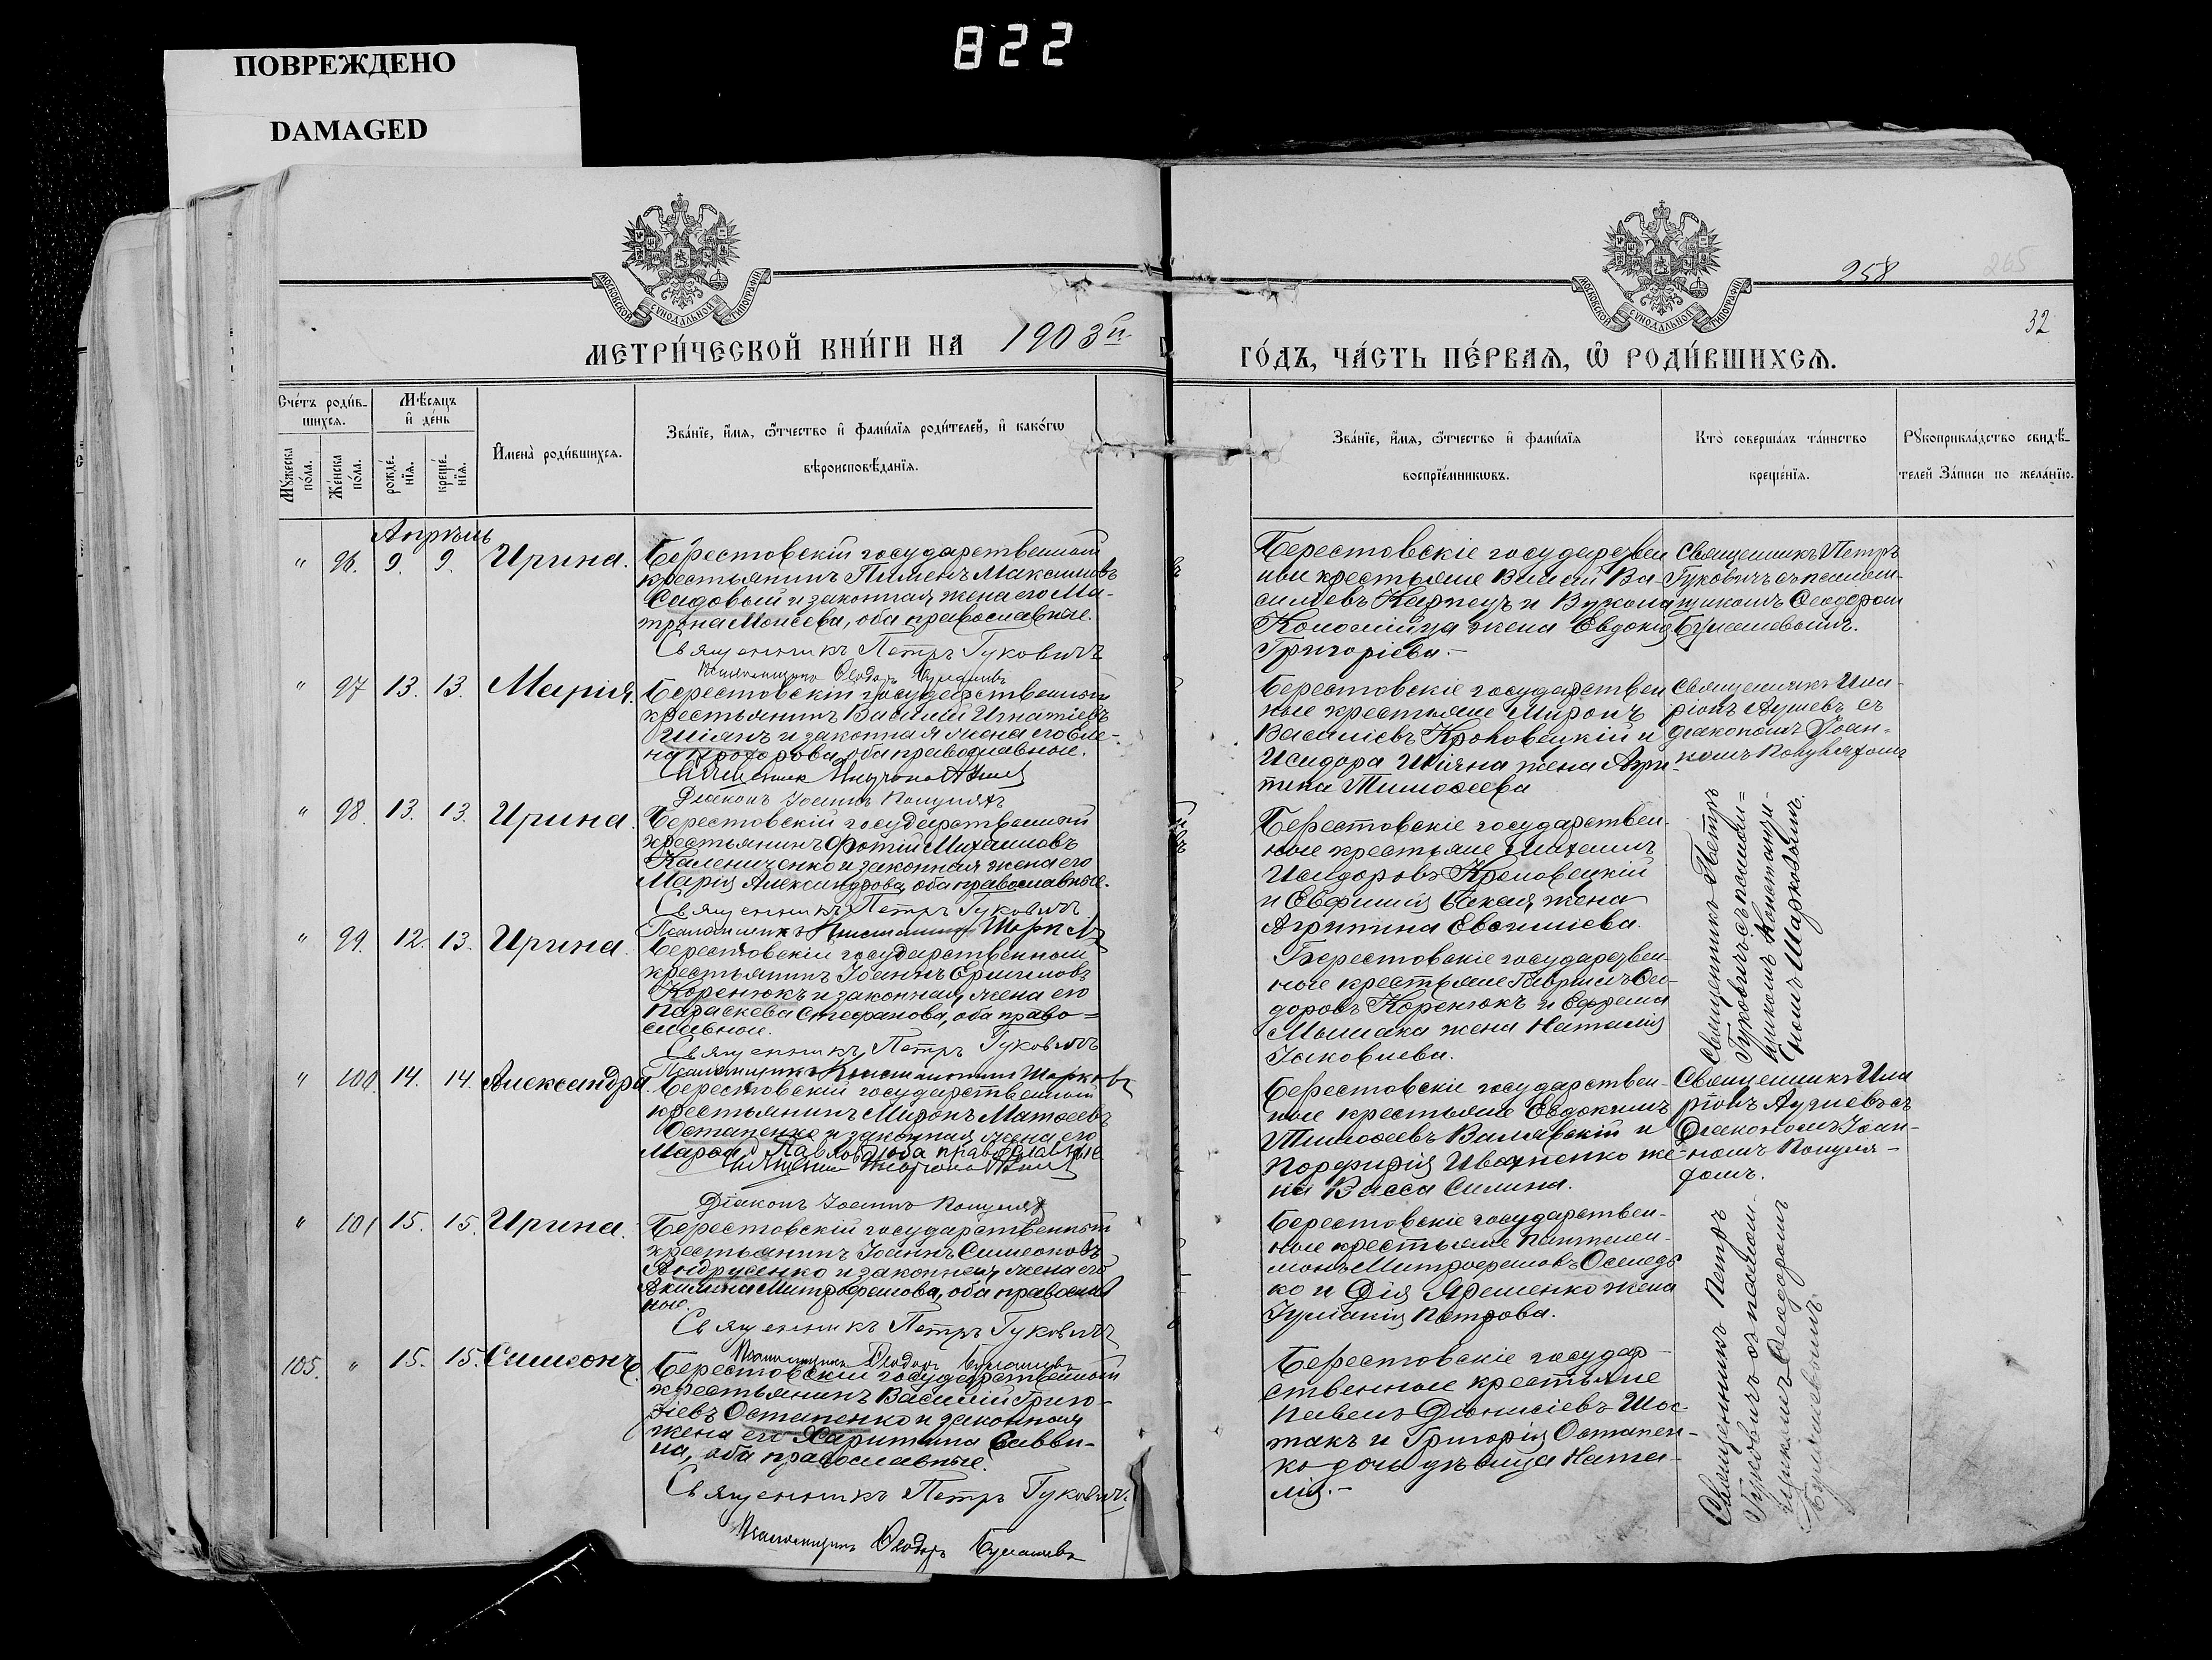 822
ПОВРЕЖДЕНО
DAMAGED
МОСКОВСКОЙ СѴНОДАЛЬНОЙ ТИПОГРАФІИ
МОСКОВСКОЙ СѴНОДАЛЬНОЙ ТИПОГРАФІИ
258
265
32
МЕТРИ́ЧЕСКОЙ КНИ́ГИ НА 1903й
ГО́ДЪ, ЧА́СТЬ ПЕ́РВАЯ, Ѽ РОДИ́ВШИХСЯ.
Сче́тъ роди́в-
шихся.
Му́жеска по́ла.
Же́нска по́ла.
Мѣ́сяцъ
и҆ де́нь
рожде́-
нія.
креще́-
нія.
И҆мена̀ роди́вшихся.
Зва́нїе, и҆́мя, ѻ҆́тчество и҆ фами́лїя роди́телей, и҆ како́гѡ
вѣроисповѣ́данїя.
Зва́нїе, и҆́мя, ѻ҆́тчество и҆ фами́лїя
воспрїе́мникѡвъ.
Кто̀ соверша́лъ та́инство
креще́нїя.
Рꙋкоприкла́дство свидѣ́-
телей За́писи по жела́нїю.
Апрѣль
" 96. 9. 9. Ирина.
Берестовскій государственный
крестьянинъ Пименъ Максимовъ
Садовый и законная жена его Ма-
трона Моисеева, оба православные.
Священникъ Петръ Гуковичъ
Псаломщикъ Ѳеодоръ Бумашевъ
Берестовскіе государствен
ные крестьяне Василій Ва-
сильевъ Карпецъ и Вукола
Коломійца жена Евдокія
Григоріева.-
Священникъ Петръ
Гуковичъ съ псалом-
щикомъ Ѳеодоромъ
Бумашевымъ.
" 97 13. 13. Марія.
Берестовскій государственный
крестьянинъ Василій Игнатіевъ
Шіянъ и законная жена его Еле-
на Прохорова, оба православные.
Діаконъ Іоаннъ
Берестовскіе государствен
ные крестьяне Миронъ
Василіевъ Кроповецкій и
Исидора Шіяна жена Агри-
пина Тимоѳеева
Священникъ Ила-
ріонъ Ауліевъ съ
діакономъ Іоан-
номъ
" 98. 13. 13. Ирина.
Берестовскій государственный
крестьянинъ Фотій Михаиловъ
Калениченко и законная жена его
Марія Александрова, оба православные.
Священникъ Петръ Гуковичъ
Псаломщикъ Константинъ Марковъ
Берестовскіе государствен-
ные крестьяне Михаилъ
Исидоровъ Кроповецкій
и Евфимія жена
Агрипина Евфиміева.
Священникъ Петръ
Гуковичъ съ псалом=
щикомъ Константи-
номъ Марковымъ.
" 99. 12. 13. Ирина.
Берестовскій государственный
крестьянинъ Іоаннъ Ермиловъ
Коренюкъ и законная жена его
Параскева Стефанова, оба право=
славные.
Священникъ Петръ Гуковичъ
Псаломщикъ Константинъ Марковъ
Берестовскіе государствен-
ные крестьяне Гавріилъ Ѳео-
доровъ Коренюкъ и Ефрема
Мышака жена Наталія
Іаковлева.
" 100 14. 14. Александра.
Берестовскій государственный
крестьянинъ Миронъ Матѳеевъ
Остапенко и законная жена его
Марѳа Павлова, оба православные
Діаконъ Іоаннъ
Берестовскіе государствен-
ные крестьяне Евдокимъ
Тимоѳеевъ Валявскій и
Порфирія Ивахненко же-
на Васса Силина.
Священникъ Ила
ріонъ Ауліевъ съ
Діакономъ Іоан-
номъ
" 101 15. 15. Ирина.
Берестовскій государственный
крестьянинъ Іоаннъ Симеоновъ
Андрусенко и законная жена его
Акилина Митрофанова, оба православ
ные.
Священникъ Петръ Гуковичъ
Псаломщикъ Ѳеодоръ Бумашевъ
Берестовскіе государствен-
ные крестьяне Пантелеи-
монъ Митрофановъ Оселед-
ко и Яременко жена
Іуліанія Петрова.
Священникъ Петръ
Гуковичъ съ псалом-
щикомъ Ѳеодоромъ
Бумашевымъ.
105. " 15. 15. Симеонъ.
Берестовскій государственный
крестьянинъ Василій Григо-
ріевъ Остапенко и законная
жена его Харитина Савви-
на, оба православные.
Священникъ Петръ Гуковичъ.
Псаломщикъ Ѳеодоръ Бумашевъ
Берестовскіе государ-
ственные крестьяне
Павелъ Діонисіевъ Шос-
такъ и Григорія Остапен-
ко дочь дѣвица Ната-
лія.-